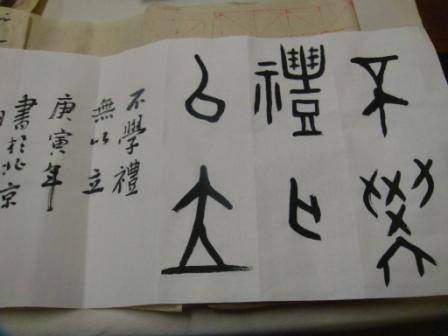 不學
禮亡
㠯立
不學禮
無以立
庚寅年
書於北京